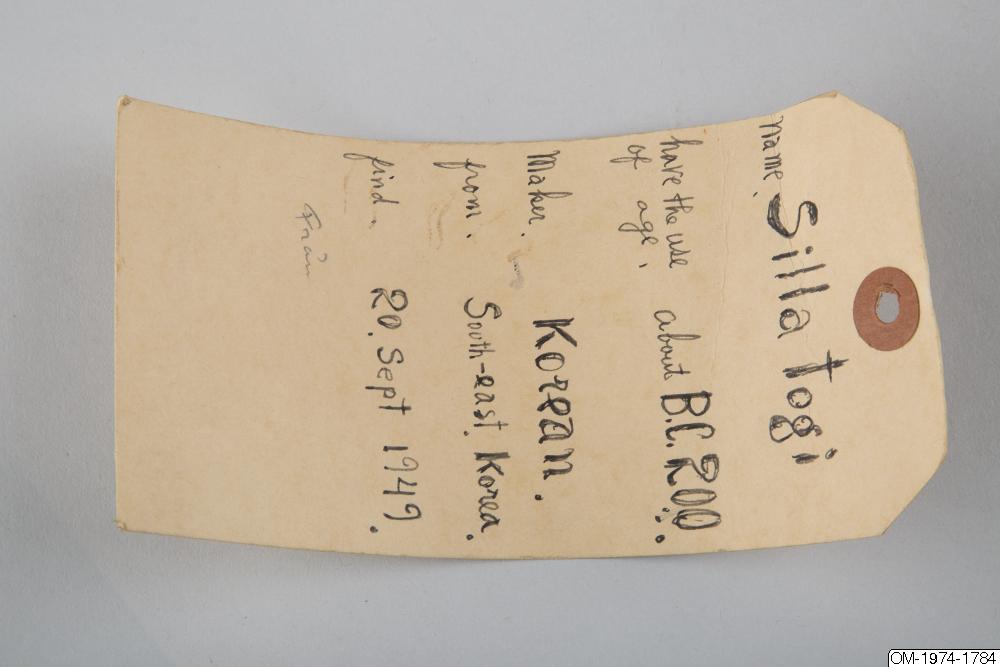 name. Silla Togi
have the use about B.C. 200.
of age.
Maker. Korean.
from. South-east. Korea.
find. 20. Sept 1949.
Från
OM-1974-1784